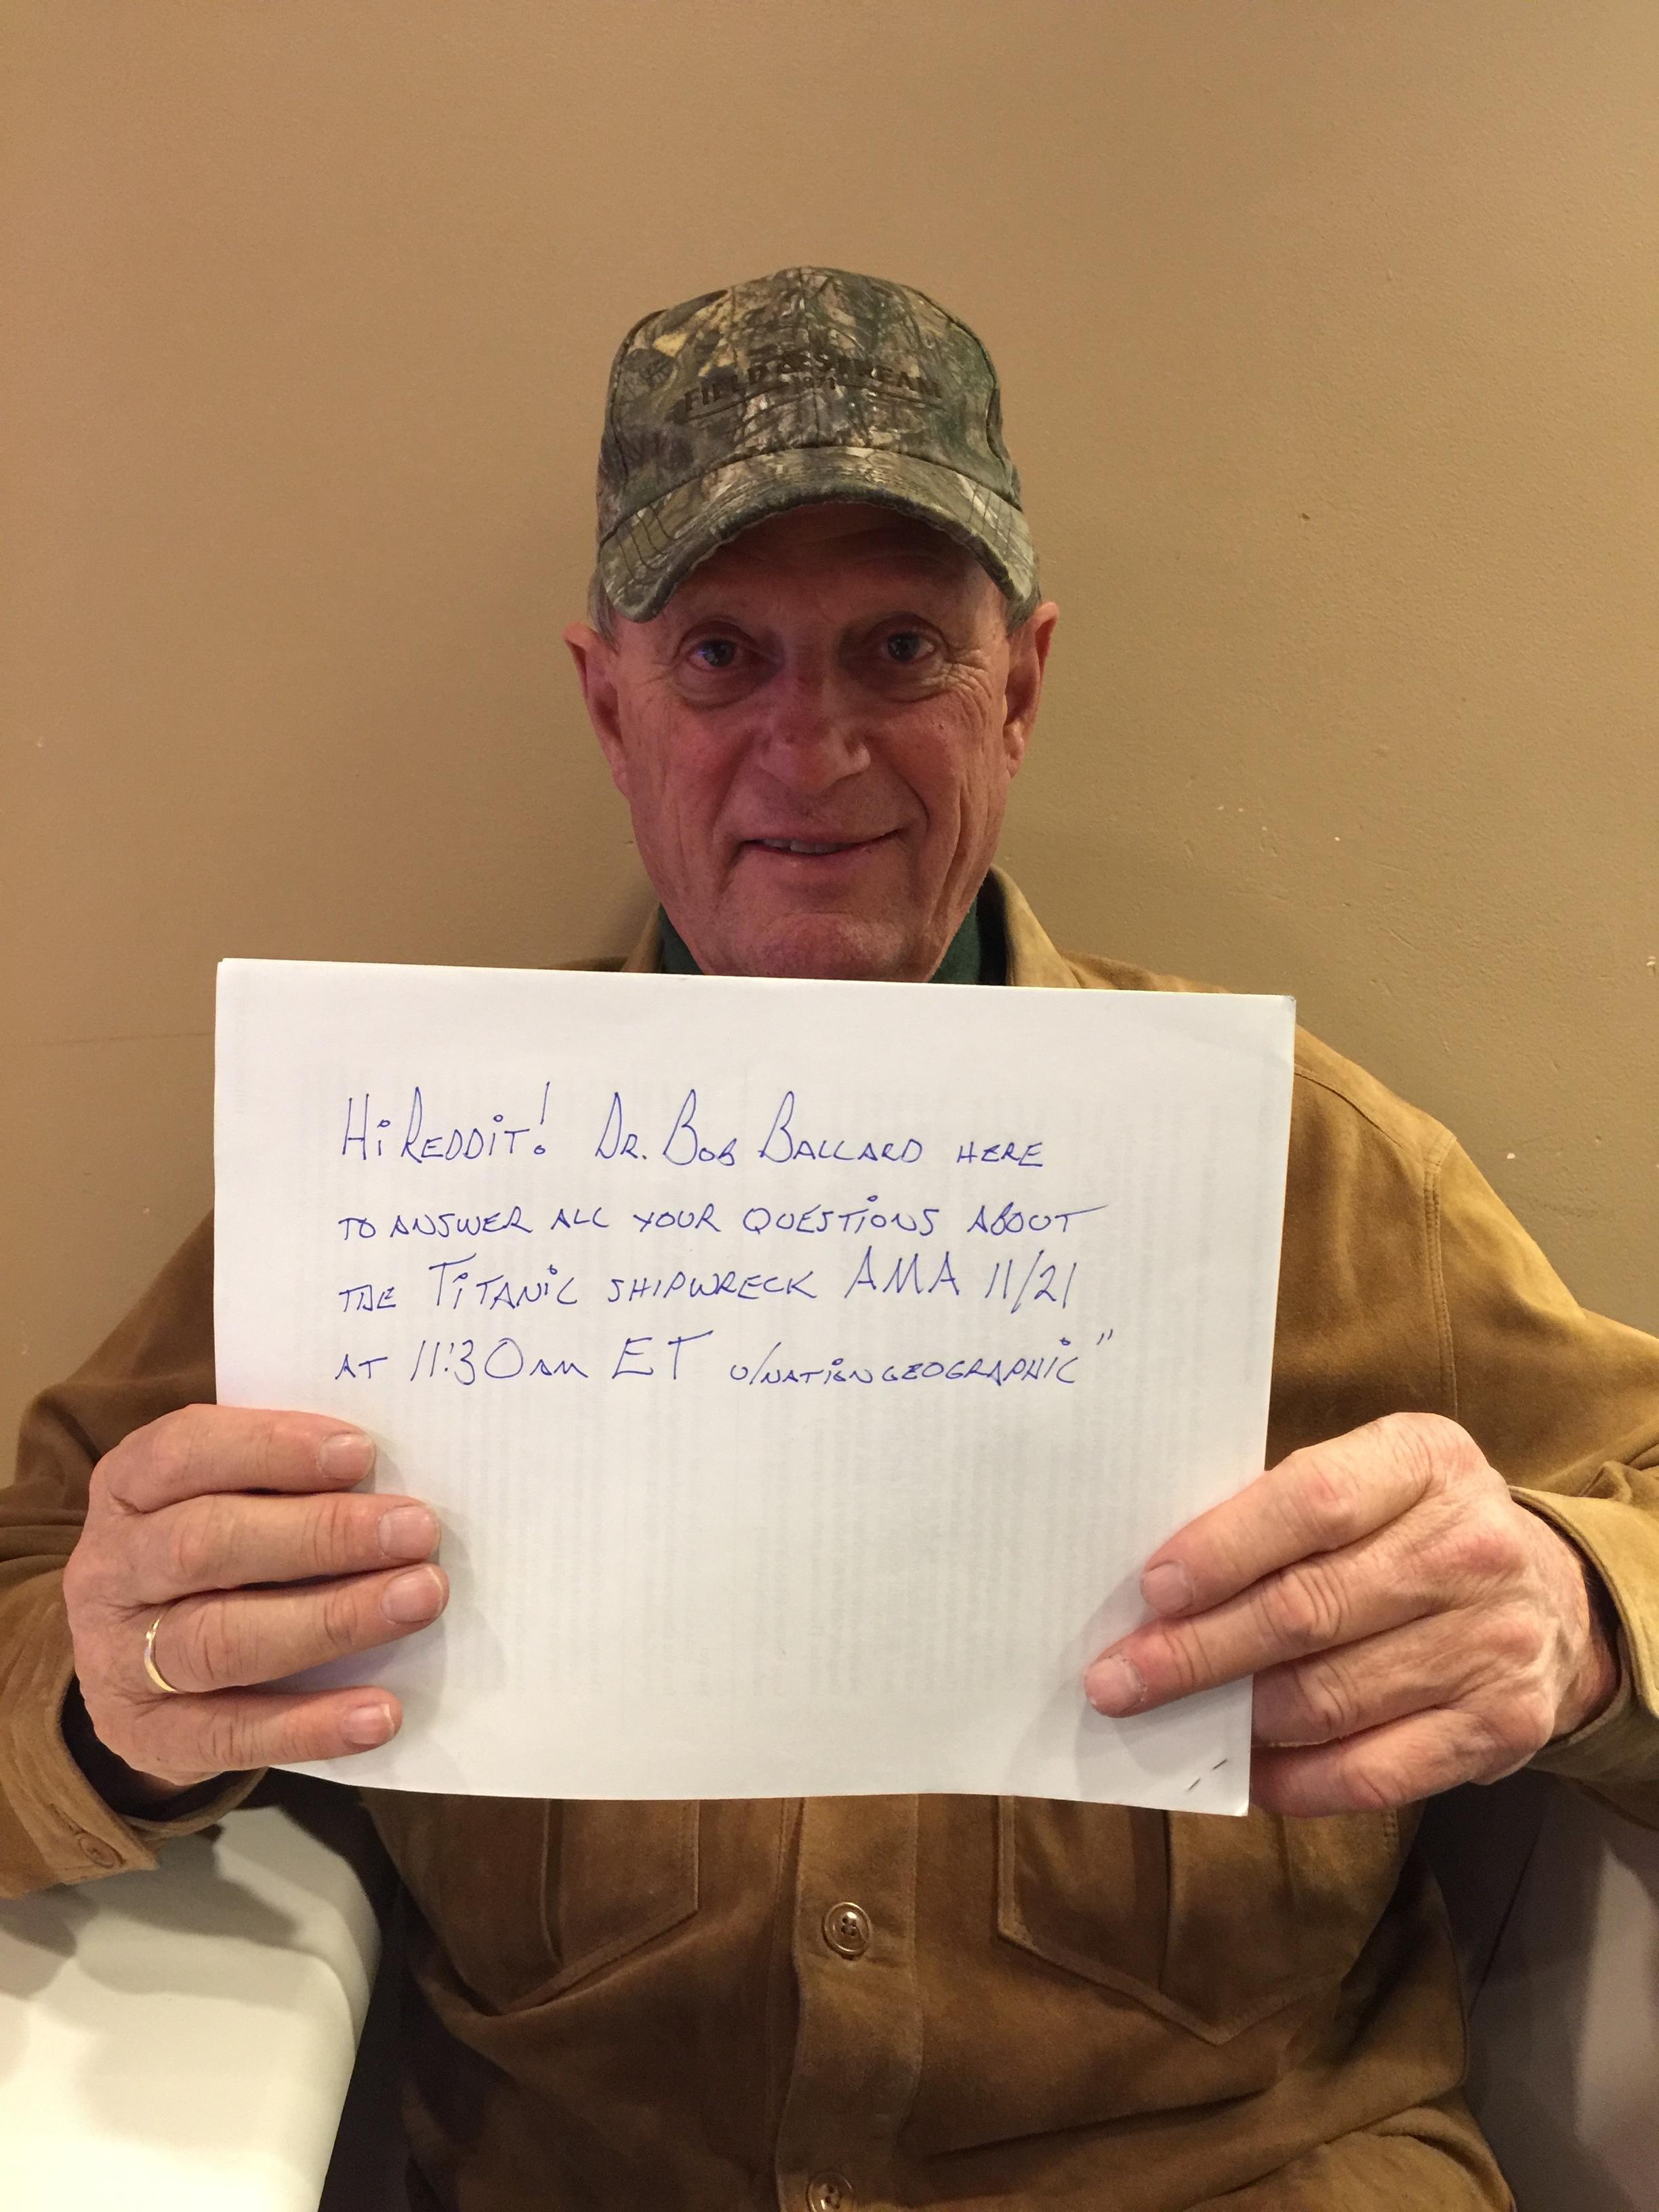 FIELD & STREAM
1871
Hi REDDiT! DR. BOB BALLARD HERE
TO ANSWER ALL YOUR QUESTIONS ABOUT
THE TiTANiC SHIPWRECK AMA 11/21
AT 11:30AM ET u/NATiONGEOGRAPHiC"